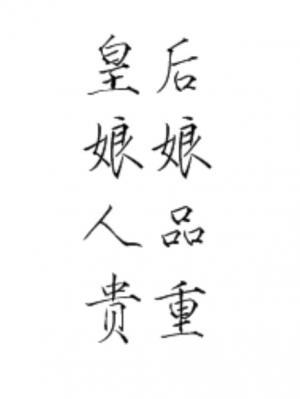 皇后
娘娘
人品
贵重